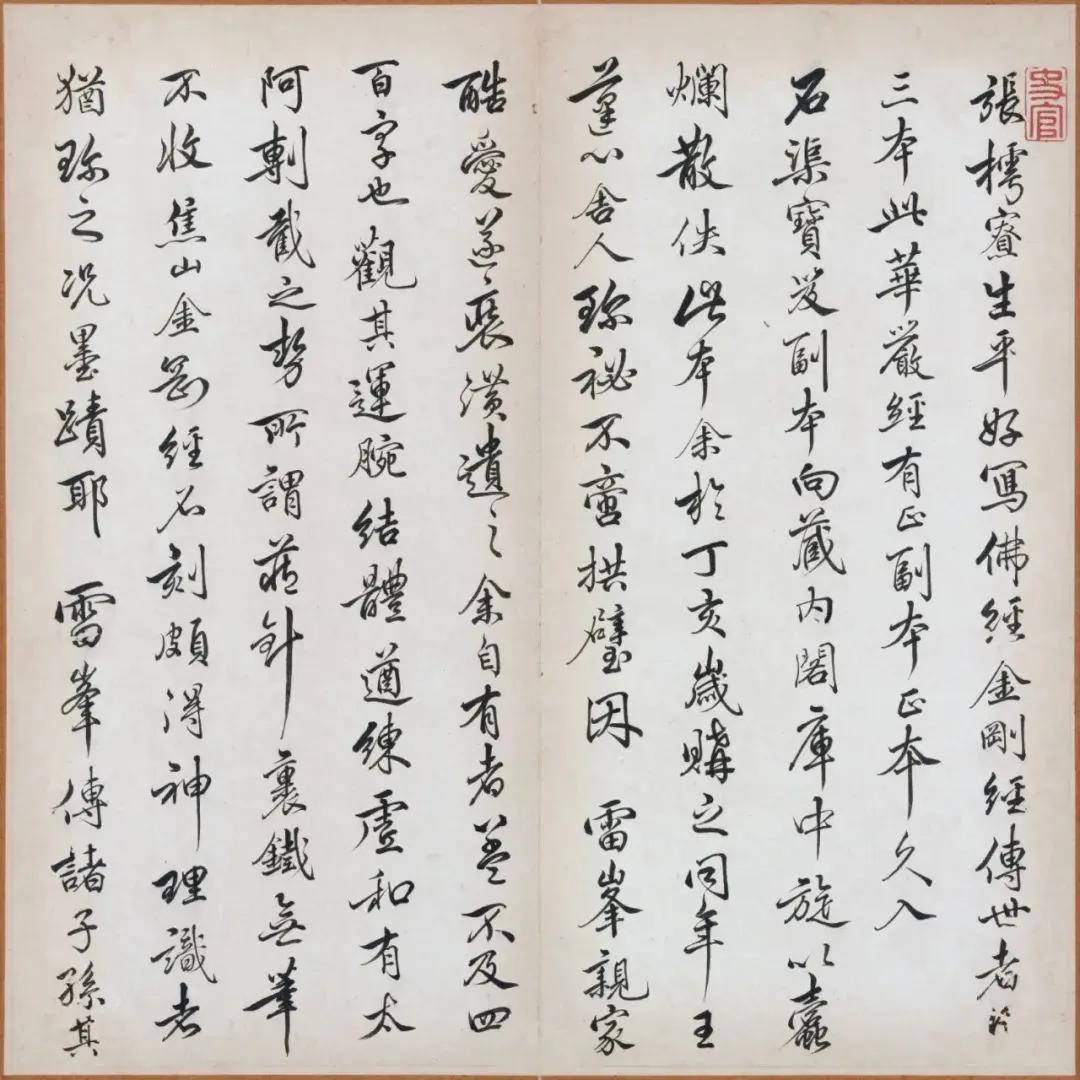 史官
張樗寮生平好寫佛經金剛經傳世者於
三本此華嚴經有正副本正本久入
石渠寶笈副本向藏內閣庫中旋以蠹
爛散佚此本余於丁亥歲購之同年王
蓮心舍人珍秘不啻拱璧因 雷峯親家
酷愛遂裝潢遺之余自有者蓋不及四
百字也觀其運腕結體遒練虛和有太
阿剸截之勢所謂藏針裹鐵無筆
不收焦山金剛經石刻頗得神理識者
猶珍之況墨蹟耶 雷峯傳諸子孫其